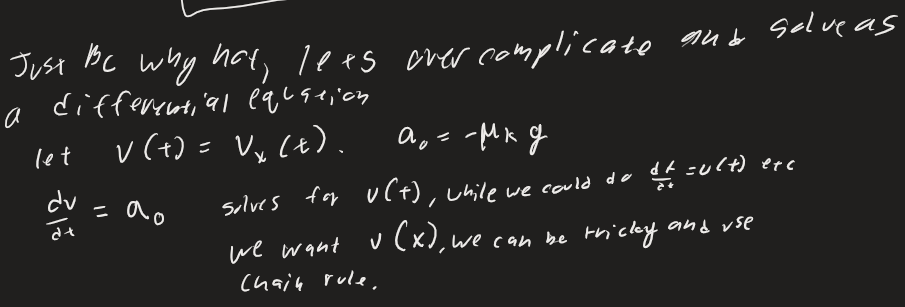 Just Bc why not, lets over complicate and solve as
a differential equation
let v(t) = Vx(t). a₀ = -μk g
dv/dt = a₀ solves for v(t), while we could do dx/dt = v(t) etc
we want v(x), we can be tricky and use
chain rule.